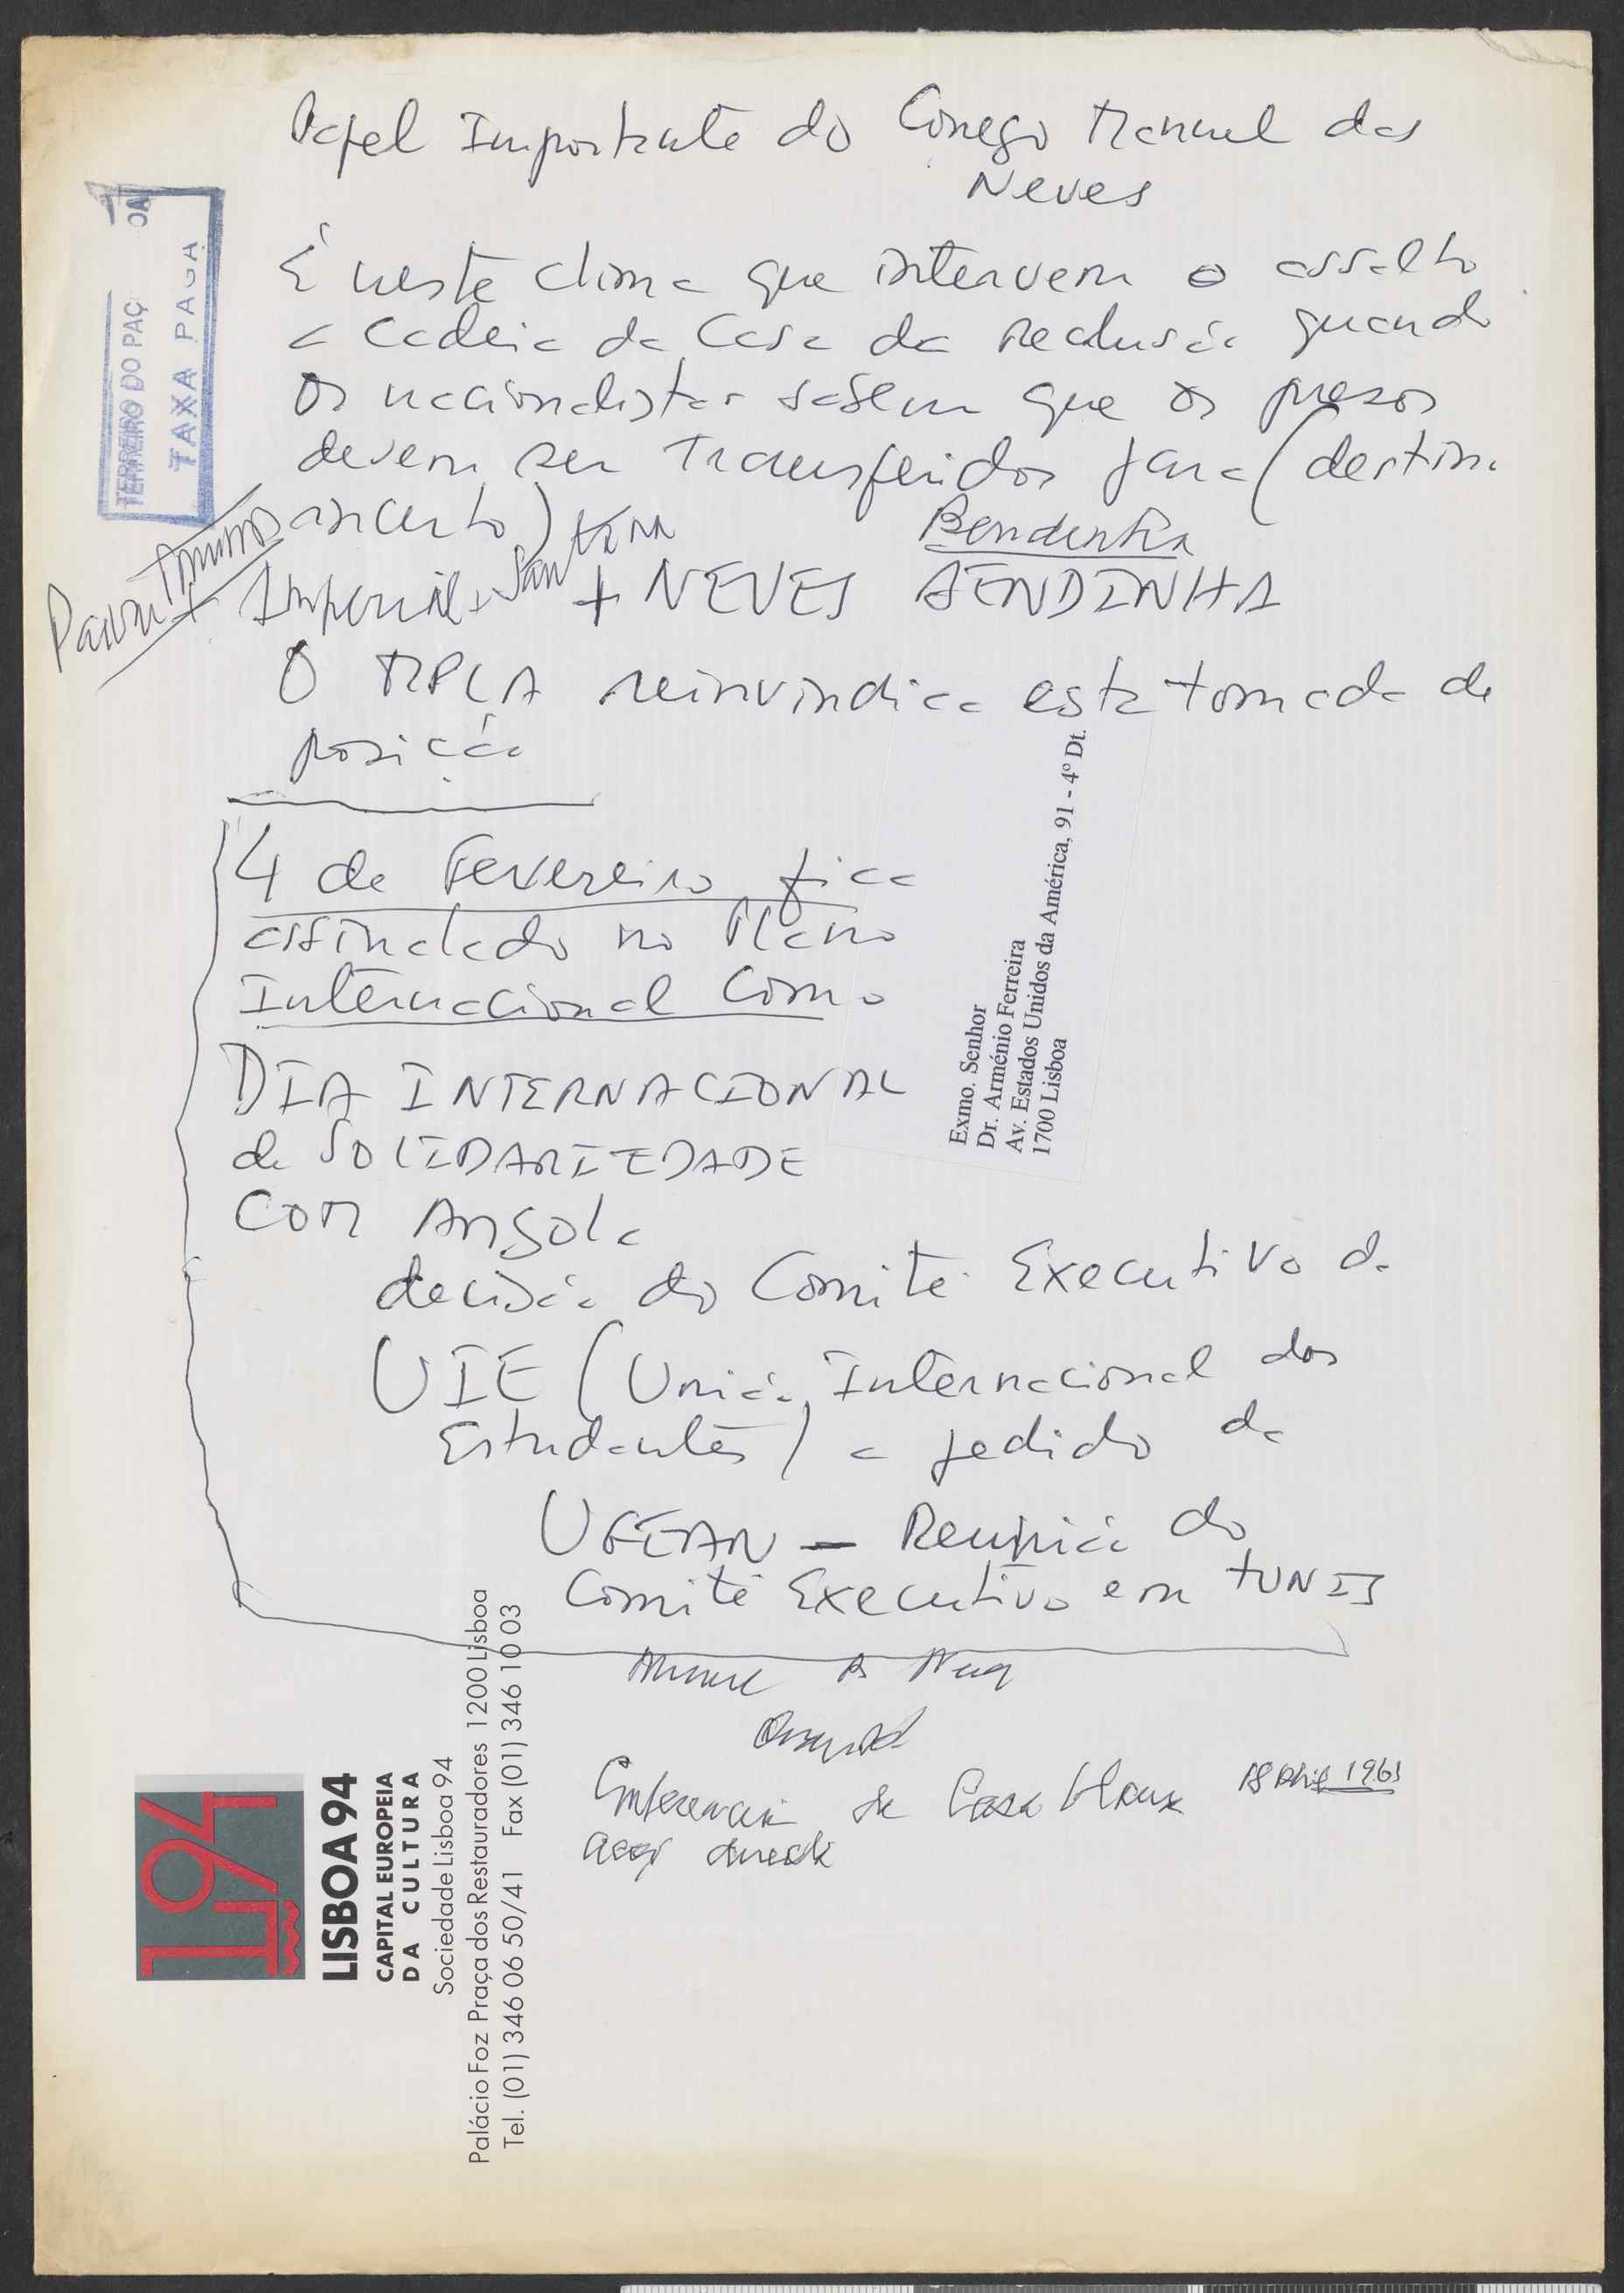 Papel Importante do Conego Manuel das
Neves
É neste clima que intervem o assalto
a Cadeia da Casa da Reclusão quando
os nacionalistas sabem que os presos
devem ser transferidos para (destino
incerto)
Bendinha
Imperial + Santana + NEVES BENDINHA
O MPLA reinvindica esta tomada de
posição
4 de Fevereiro fica
assinalado no Plano
Internacional Como
DIA INTERNACIONAL
de SOLIDARIEDADE
COM Angola
decisão do Comité Executivo da
UIE (União Internacional dos
Estudantes) a pedido da
UGEAN — Reunião do
Comité Executivo em TUNIS
Manuel das Neves
Conferencia de Casablanca 18 Abril 1961
TERREIRO DO PAÇ
TAXA PAGA
Exmo. Senhor
Dr. Arménio Ferreira
Av. Estados Unidos da América, 91 - 4º Dt.
1700 Lisboa
L94
LISBOA 94
CAPITAL EUROPEIA
DA CULTURA
Sociedade Lisboa 94
Palácio Foz Praça dos Restauradores 1200 Lisboa
Tel. (01) 346 06 50/41 Fax (01) 346 10 03